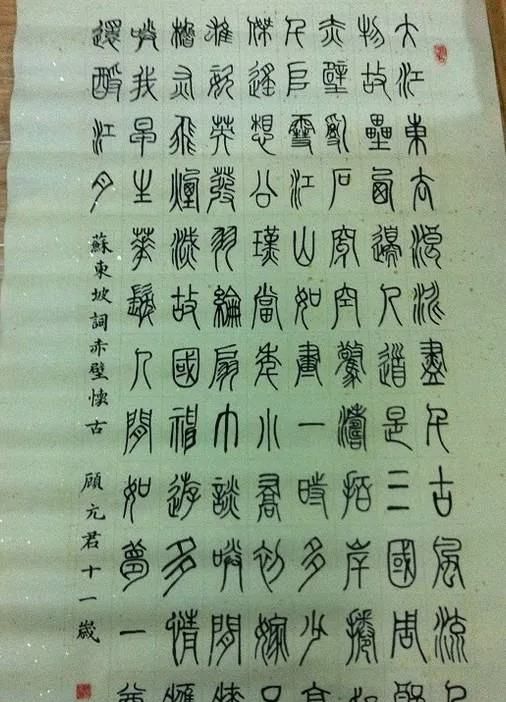 大江東去浪淘盡千古風流人
物故壘西邊人道是三國周郎
赤壁亂石穿空驚濤拍岸捲起
千堆雪江山如畫一時多少豪
傑遙想公瑾當年小喬初嫁了
雄姿英發羽綸扇巾談笑間檣
櫓灰飛煙滅故國神遊多情應
笑我早生華髮人間如夢一尊
還酹江月
蘇東坡詞赤壁懷古 顧亢君十一歲